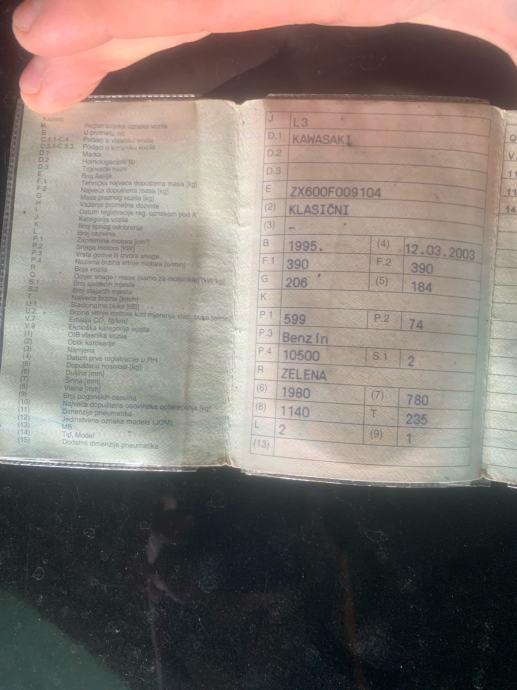 A Registracijska oznaka vozila
B U prometu od
C.1.1-C.4 Podaci o vlasniku vozila
C.3.1-C.3.3 Podaci o korisniku vozila
D.1 Marka
D.2 Homologacijski tip
D.3 Trgovački naziv
E Broj šasije
F.1 Tehnički najveća dopuštena masa [kg]
F.2 Najveća dopuštena masa [kg]
G Masa praznog vozila [kg]
H Važenje prometne dozvole
I Datum registracije reg. oznakom pod A
J Kategorija vozila
K Broj tipnog odobrenja
L Broj osovina
P.1
P.2 Snaga motora [kW]
P.3 Vrsta goriva ili izvora snage
P.4
R Boja vozila
Q
S.1 Broj sjedećih mjesta
S.2 Broj stajaćih mjesta
T Najveća brzina [km/h]
U.1
U.2
V.7
V.9 Ekološka kategorija vozila
(1) OIB vlasnika vozila
(2) Oblik karoserije
(3) Namjena
(4) Datum prve registracije u RH
(5) Dopuštena nosivost [kg]
(6) Dužina [mm]
(7) Širina [mm]
(8) Visina [mm]
(9) Broj pogonskih osovina
(10)
(11) Dimenzije pneumatika
(12) Jedinstvena oznaka modela (JOM)
(13) MB
(14) Tip, Model
(15) Dodatne dimenzije pneumatika
J L3
D.1 KAWASAKI
D.2
D.3
E ZX600F009104
(2) KLASIČNI
(3) -
B 1995. (4) 12.03.2003
F.1 390 F.2 390
G 206 (5) 184
K
P.1 599 P.2 74
P.3 Benzin
P.4 10500 S.1 2
R ZELENA
(6) 1980 (7) 780
(8) 1140 T 235
L 2 (9) 1
(13)